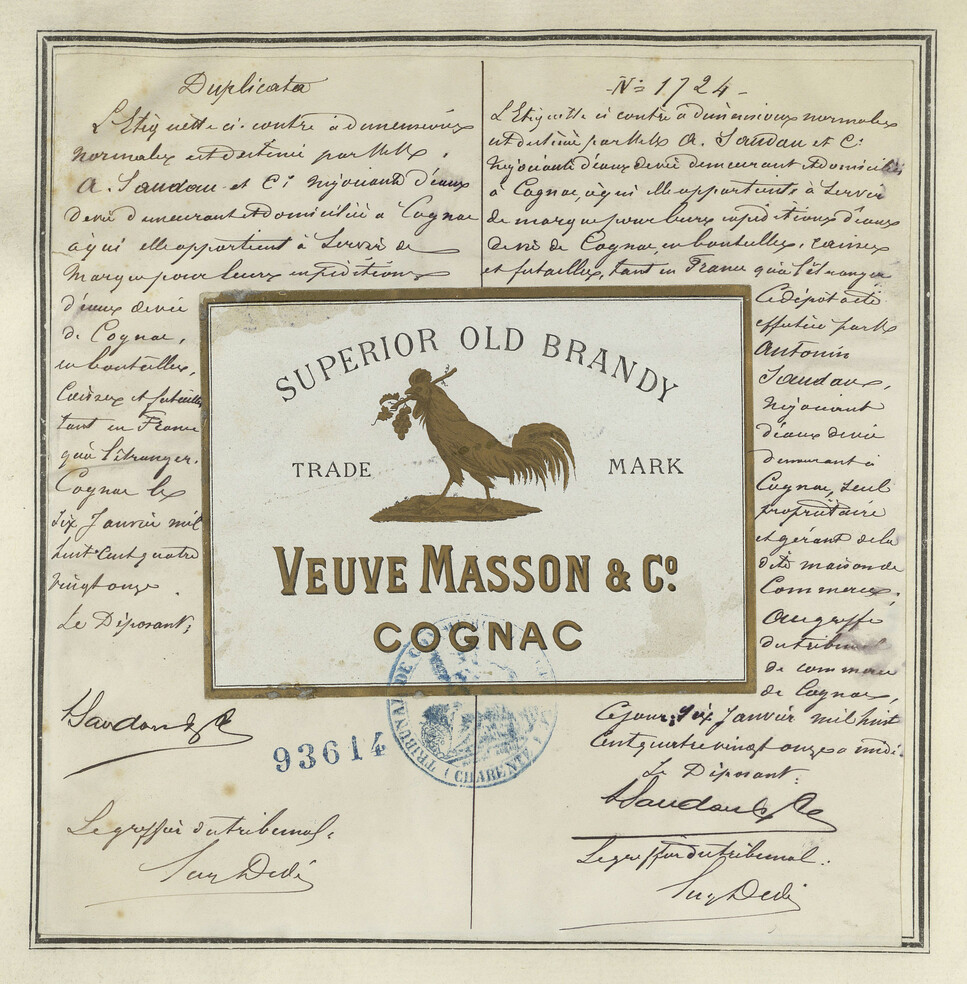 Duplicata
L'Etiquette ci-contre à dimensions
normales est destinée par MM.
A. Saudau et Cie négociants d'eaux
de vie demeurant et domiciliés à Cognac
à qui elle appartient à servir de
marque pour leurs expéditions
d'eaux de vie
de Cognac,
en bouteilles,
caisses et futailles
tant en France
qu'à l'étranger.
Cognac le
six Janvier mil
huit cent quatre
vingt onze.
Le Déposant:
Saudau & Cie
93614
Le greffier du tribunal:
N° 1724
L'Etiquette ci contre à dimensions normales
est destinée par MM. A. Saudau et Cie
négociants d'eaux de vie demeurant et domiciliés
à Cognac, à qui elle appartient à servir
de marque pour leurs expéditions d'eaux
de vie de Cognac en bouteilles, caisses
et futailles, tant en France qu'à l'étranger
Ce dépôt a été
effectué par M.
Antonin
Saudau,
négociant
d'eaux de vie
demeurant à
Cognac, seul
propriétaire
et gérant de la
dite maison de
Commerce,
au greffe
du tribunal
de commerce
de Cognac,
Ce jour, six Janvier mil huit
cent quatre vingt onze à midi.
Le Déposant:
Saudau & Cie
Le greffier du tribunal:
SUPERIOR OLD BRANDY
TRADE MARK
VEUVE MASSON & Co.
COGNAC
TRIBUNAL DE
(CHARENTE)